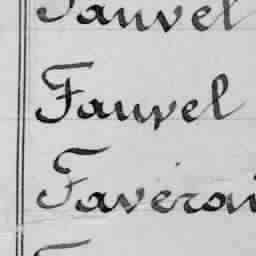 Fauvel
Fauvel
Faverai